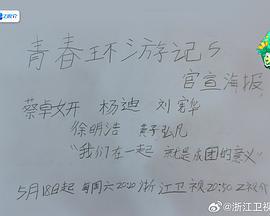 青春环游记5
官宣海报
蔡卓妍 杨迪 刘宪华
徐明浩 黄子弘凡
“我们在一起 就是成团的意义”
5月18日起 每周六2020 浙江卫视20:50 Z视介
@浙江卫视